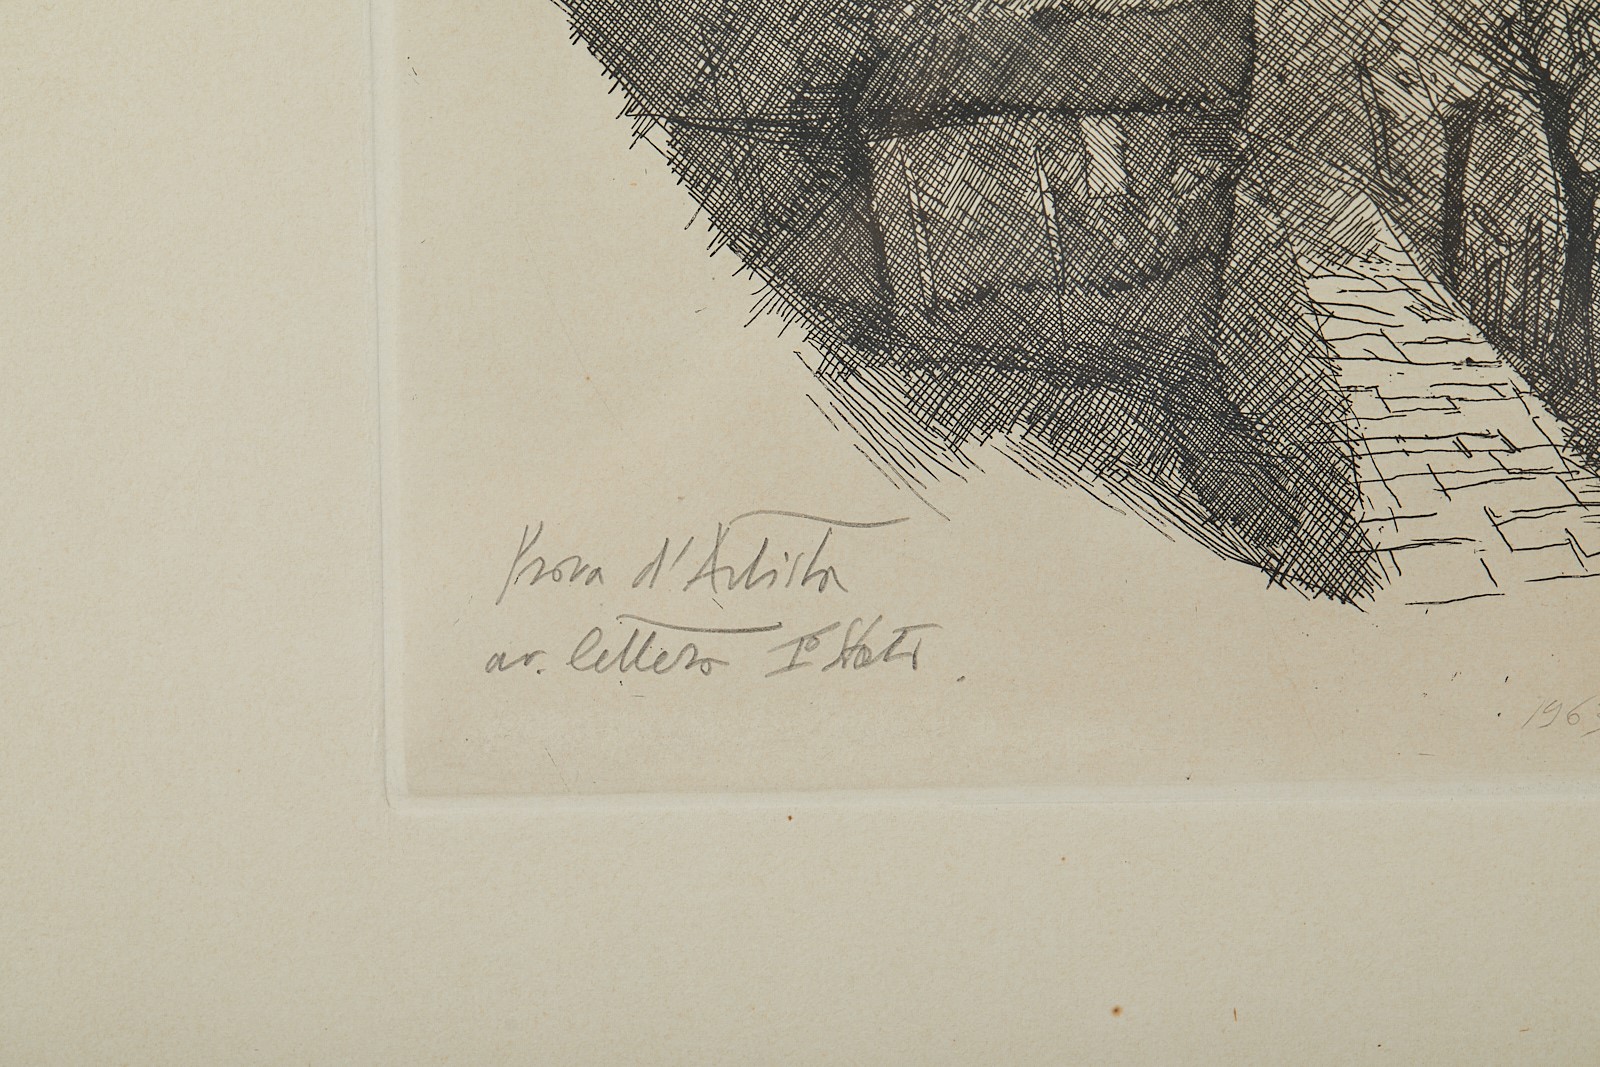 Prova d'Artista
av. lettera I° Stato.
196